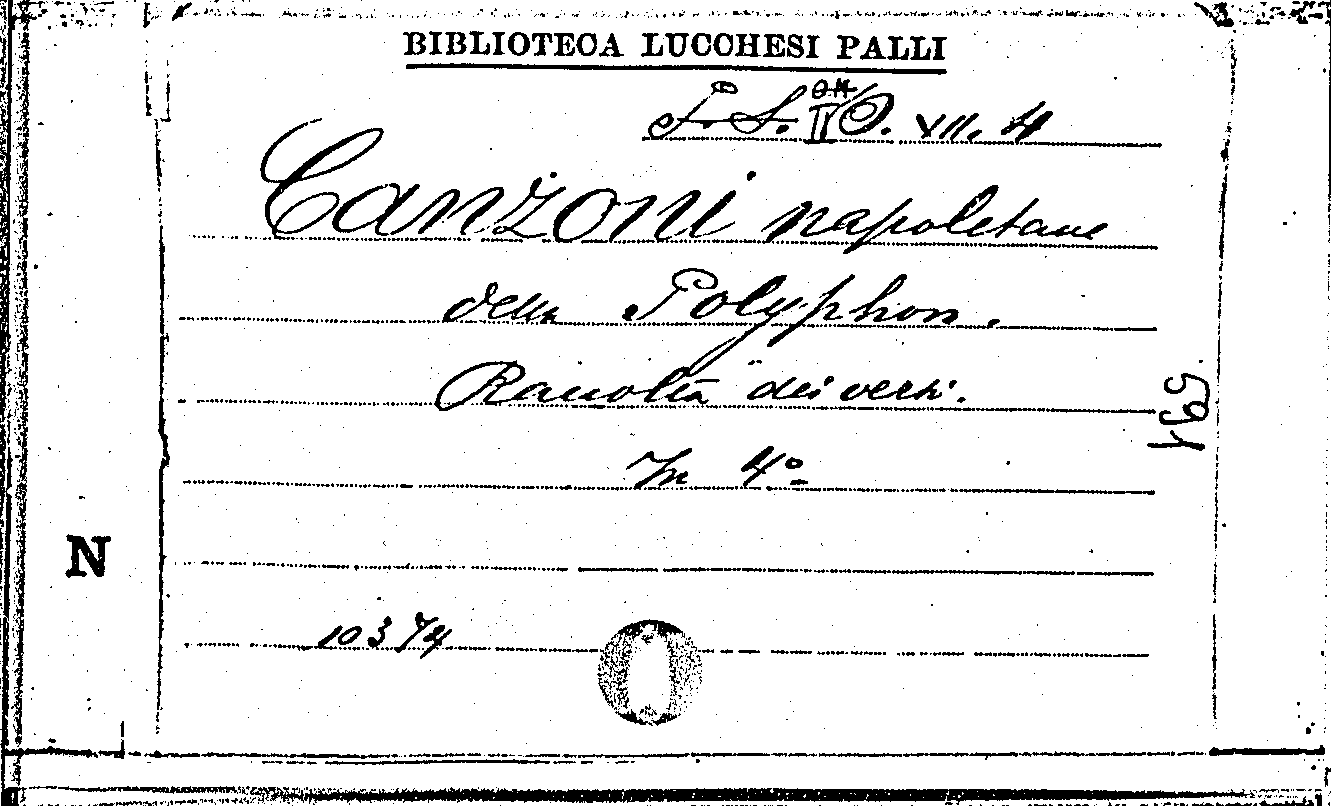 BIBLIOTECA LUCCHESI PALLI
VII. 4
Canzoni napoletane
della Polyphon.
Raccolta dei versi.
In 4º
169
N
10374